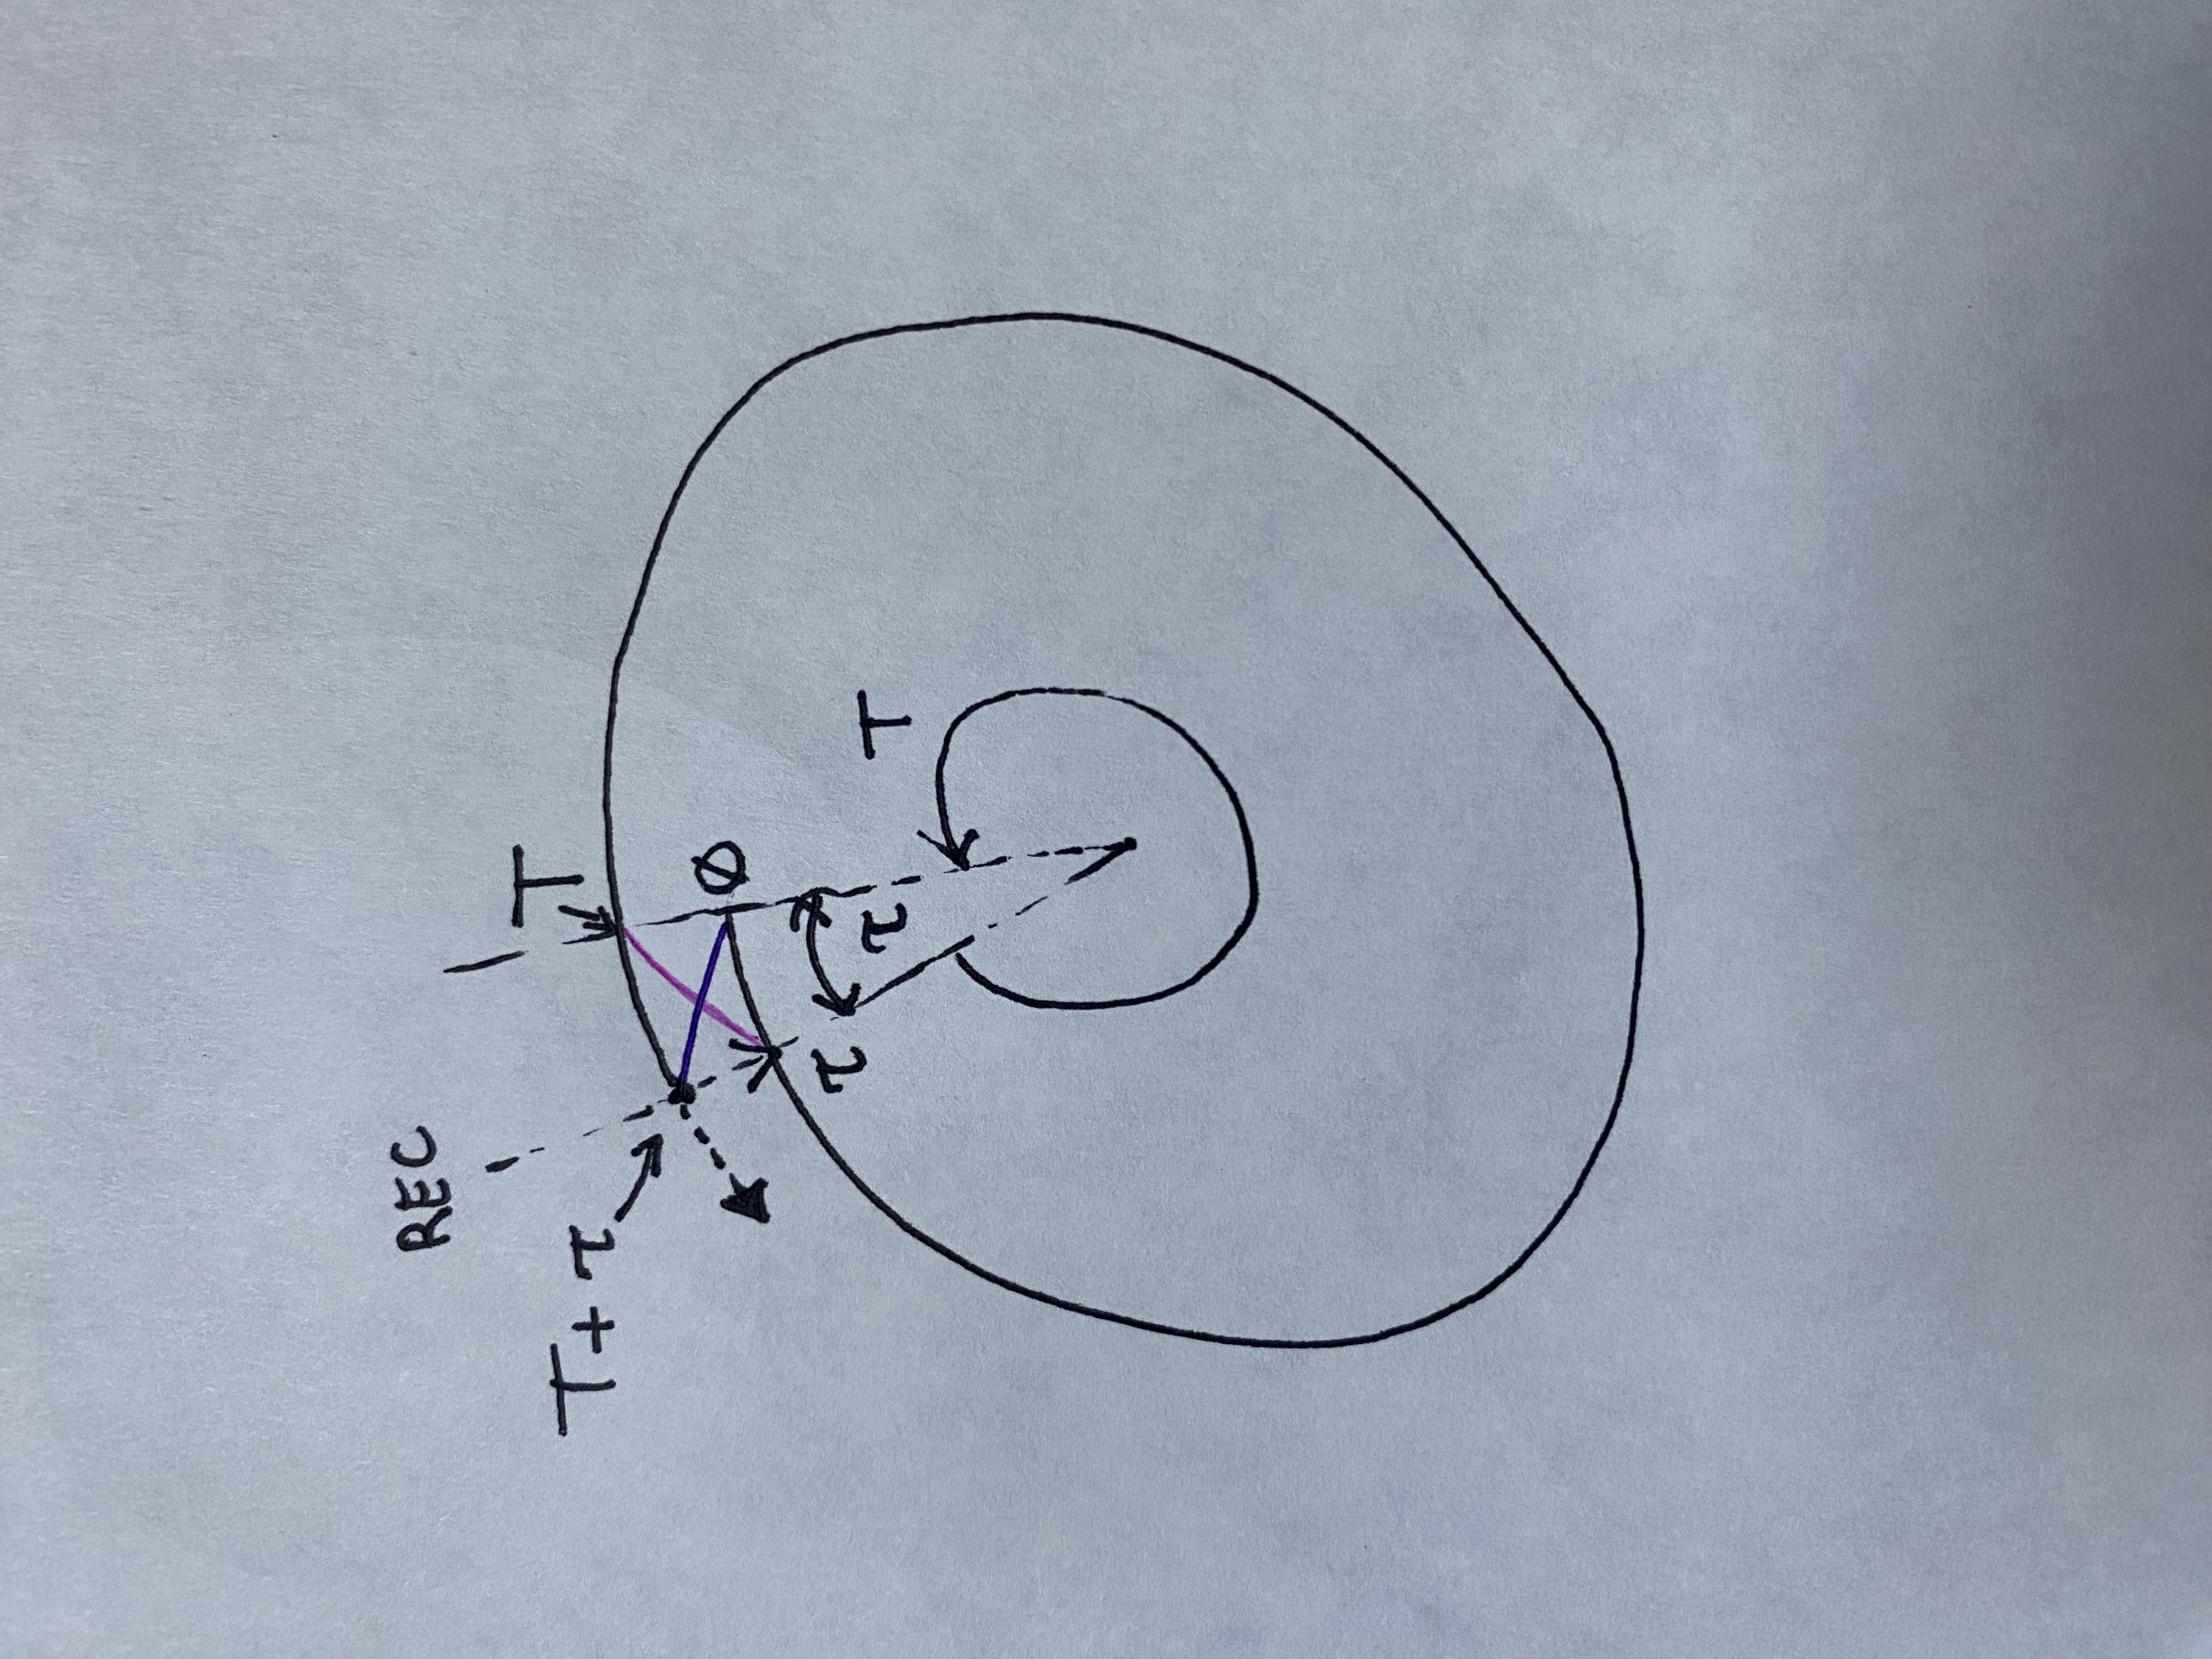 REC
T + τ
T
Ø
τ
τ
T